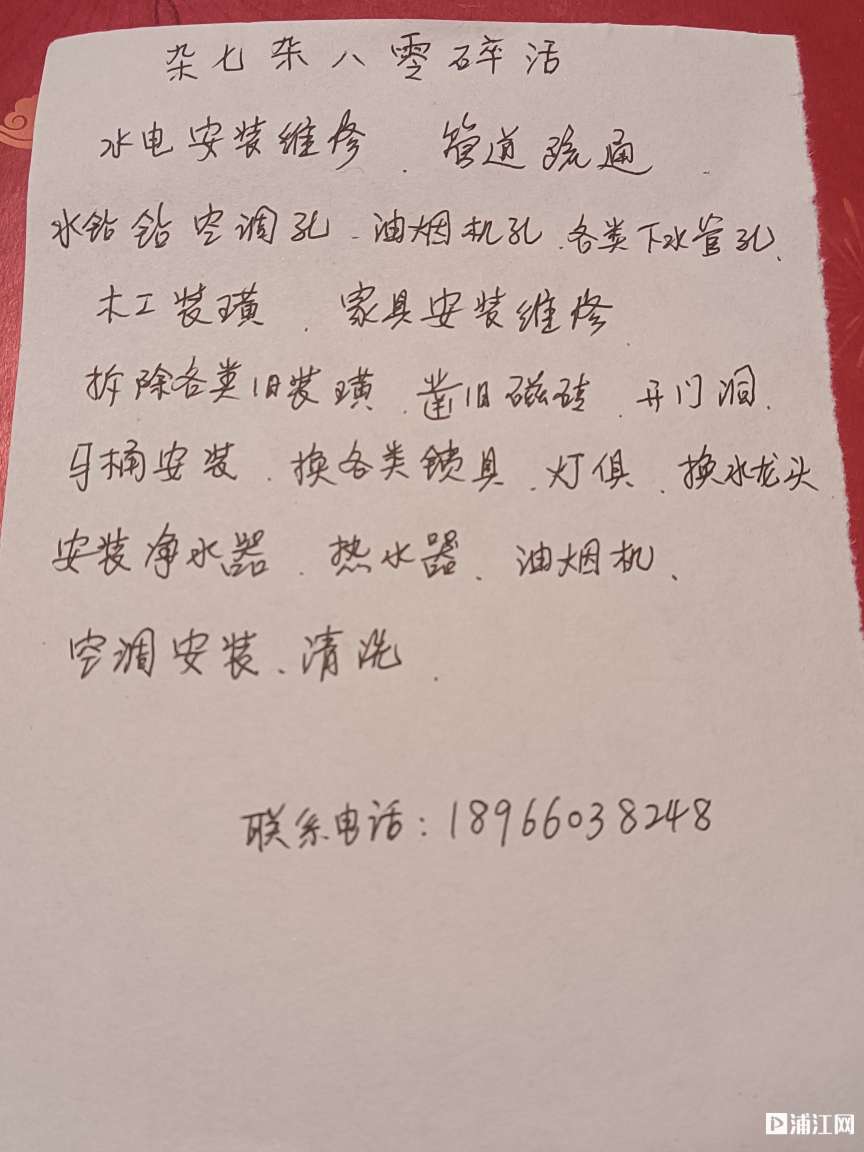 杂七杂八零碎活
水电安装维修、管道疏通、
水钻钻空调孔、油烟机孔、各类下水管孔、
木工装璜、家具安装维修
拆除各类旧装璜、凿旧磁砖、开门洞、
马桶安装、换各类锁具、灯俱、换水龙头
安装净水器、热水器、油烟机、
空调安装、清洗、
联系电话：18966038248
浦江网